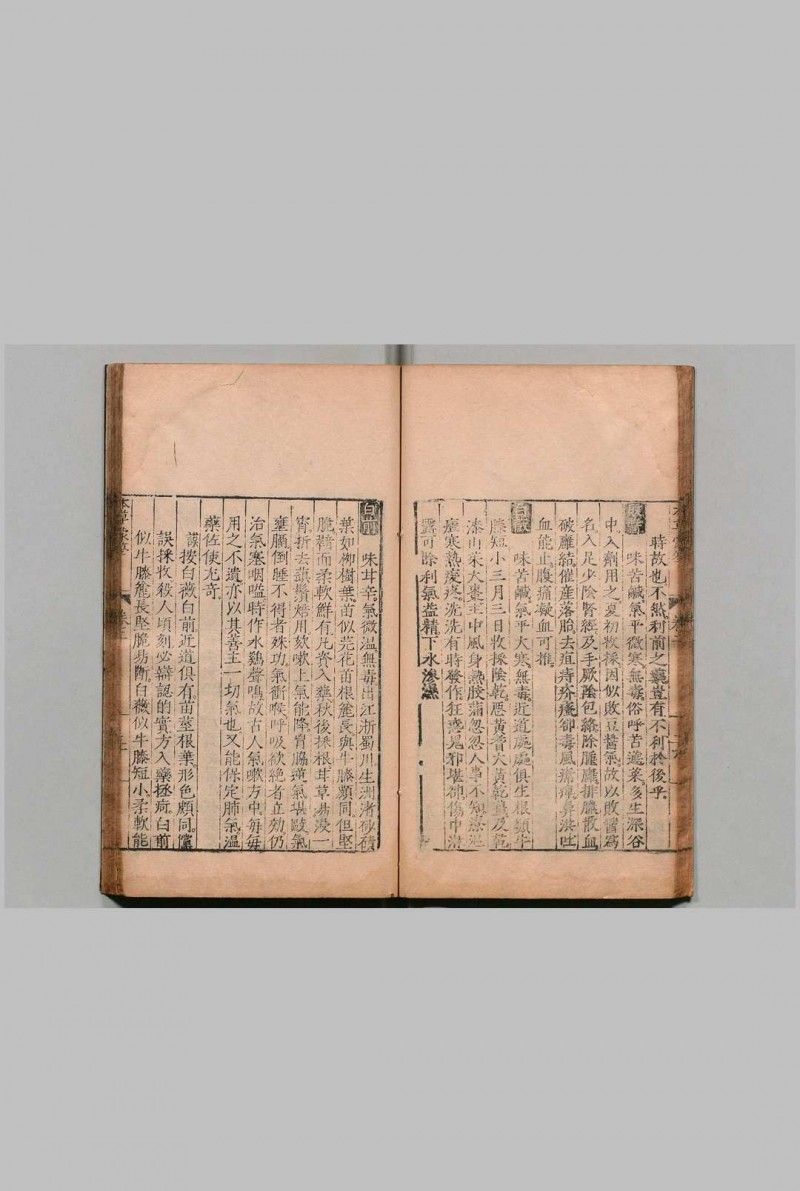 時故也不然利前之藥豈有不利於後乎
敗醬
味苦鹹氣平微寒無毒俗呼苦遮菜多生深谷
中入劑用之夏初收採因似敗豆醬氣故以敗醬爲
名入足少陰腎經及手厥陰包絡除腫癰排膿散血
破癥結催産落胎去疽痔疥瘙卻毒風瘡痺鼻洪吐
血能止腹痛凝血可推
白薇
味苦鹹氣平大寒無毒近道處處俱生根類牛
膝短小三月三日收採陰乾惡黃耆大黃乾薑及乾
漆山茱大棗主中風身熱肢滿忽忽人事不知療溫
瘧寒熱痠疼洗洗有時發作狂惑見邪堪卻傷中淋
露可除利氣益精下水滲濕
白前
味甘辛氣微溫無毒出江浙蜀川生洲渚砂磧
葉如柳樹葉苗似芫花苗根麄長與牛膝顏同但堅
脆鞕而柔軟鮮有凡資入藥秋後採根甘草湯浸一
宵折去鬚焙用欬嗽上氣能降胷脇逆氣堪敺氣
壅膈倒睡不得者殊功氣衝喉呼吸欲絕者立効仍
治氣塞咽嗌時作水鷄聲鳴故古人氣嗽方中每每
用之不遺亦以其善主一切氣也又能保定肺氣溫
藥佐使尤奇
謹按白薇白前近道俱有苗莖根葉形色頗同儻
誤採收殺人頃刻必辯認的實方入藥拯痾白前
似牛膝麄長堅脆易斷白薇似牛膝短小柔軟能